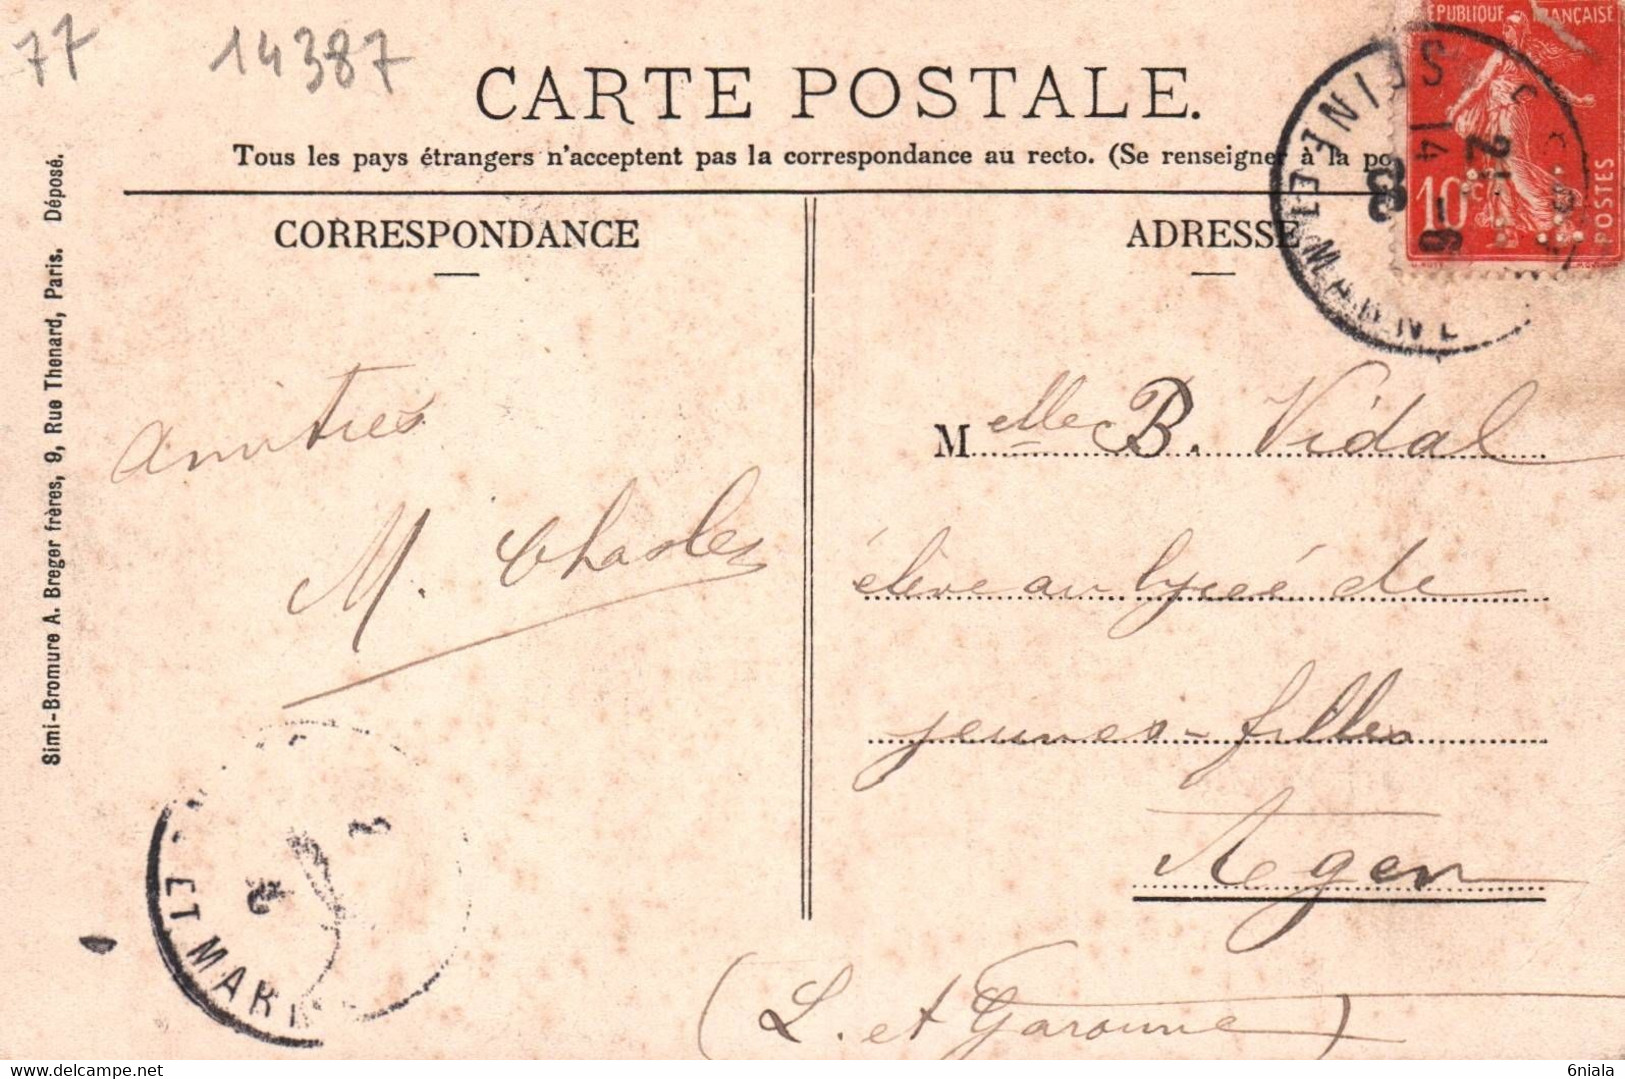 77
14387
CARTE POSTALE.
Tous les pays étrangers n'acceptent pas la correspondance au recto. (Se renseigner à la po
RÉPUBLIQUE FRANÇAISE
10 c
POSTES
SEINE ET MARNE
14
21
-6
8
CORRESPONDANCE
ADRESSE
Simi-Bromure A. Breger frères, 9, Rue Thenard, Paris. Déposé.
Amitiés
M. Charles
Melle B. Vidal
élève au lycée de
jeunes-filles
Agen
(L. et Garonne)
ET MAR
6niala